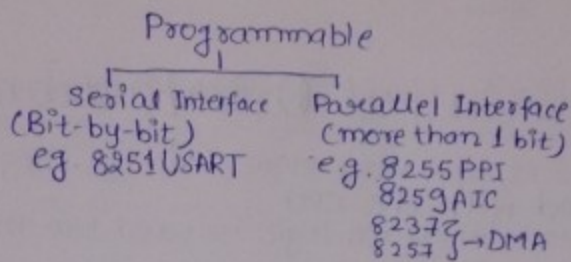 Programmable
Serial Interface
(Bit-by-bit)
eg 8251 USART
Parallel Interface
(more than 1 bit)
e.g. 8255 PPI
8259 AIC
8237
8257 } → DMA